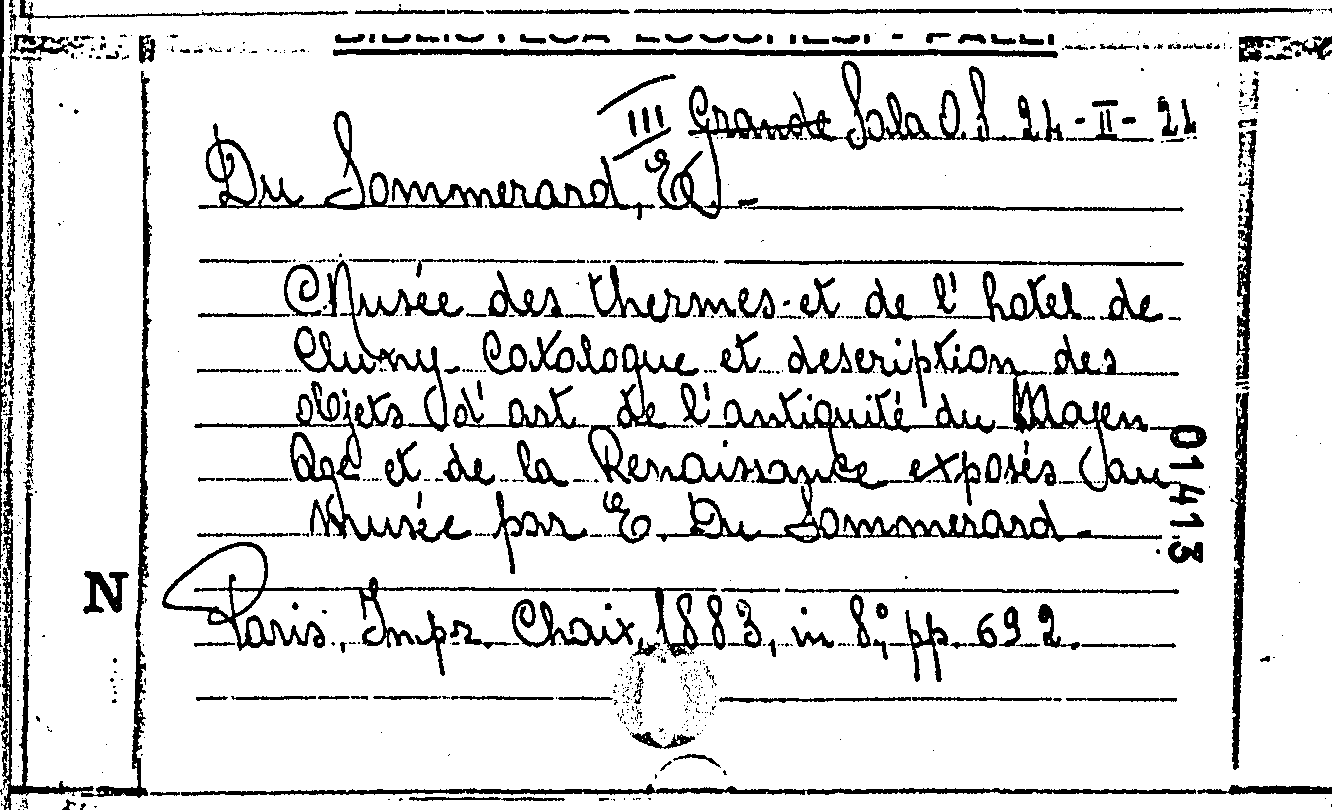 BIBLIOTECA LUCCHESI - PALLI
III Grande Sala O. S 24-II-24
Du Sommerard, E. -
Musée des thermes et de l'hotel de
Cluny Catalogue et description des
objets d'art de l'antiquité du Moyen
Age et de la Renaissance exposés au
Musée par E. Du Sommerard -
Paris, Impr. Chaix, 1883, in 8°, pp. 692.
N
01413